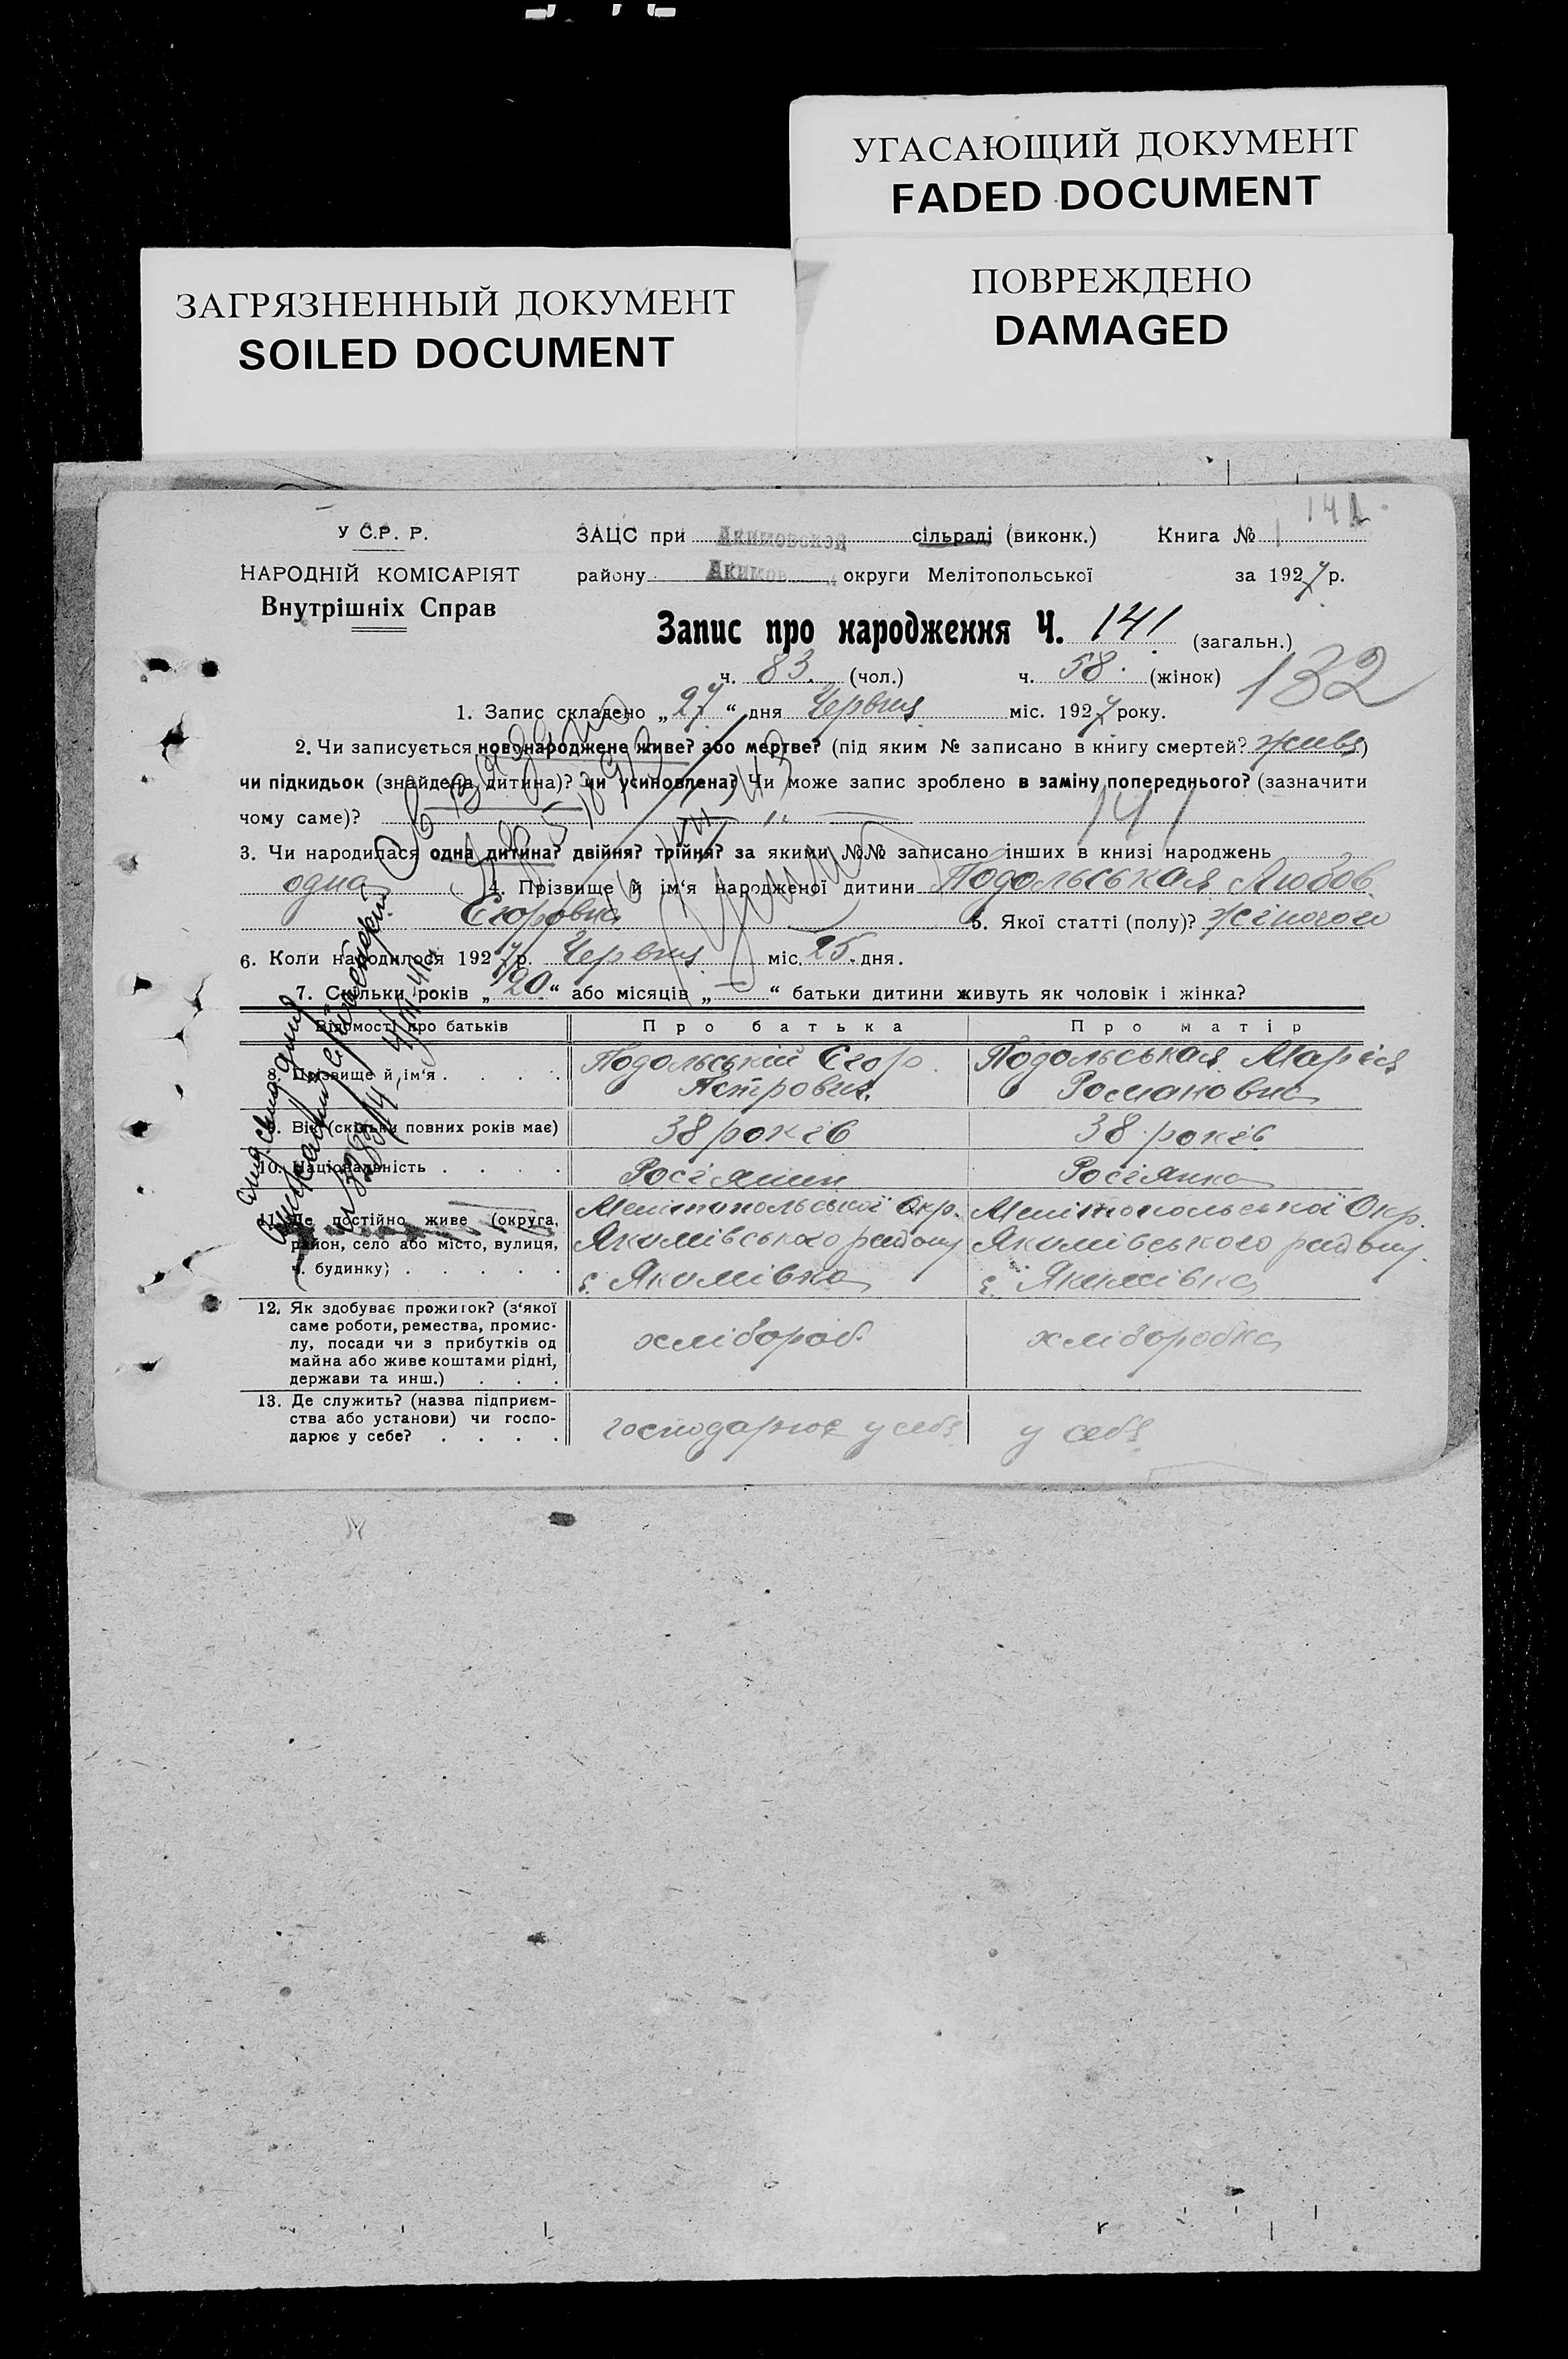 УГАСАЮЩИЙ ДОКУМЕНТ
FADED DOCUMENT
ПОВРЕЖДЕНО
DAMAGED
ЗАГРЯЗНЕННЫЙ ДОКУМЕНТ
SOILED DOCUMENT
У С.Р. Р.
НАРОДНІЙ КОМІСАРІЯТ
Внутрішніх Справ
ЗАЦС при Акимовской сільраді (виконк.) Книга № 1
району Акимов округи Мелітопольської за 1927 р.
Запис про народження Ч. 141 (загальн.)
ч. 83. (чол.) ч. 58. (жінок) 132
1. Запис складено „27“ дня Червня міс. 1927 року.
2. Чи записується новонароджене живе? або мертве? (під яким № записано в книгу смертей? живе)
чи підкидьок (знайдена дитина)? чи усиновлена? Чи може запис зроблено в заміну попереднього? (зазначити
чому саме)? 141
3. Чи народилася одна дитина? двійня? трійня? за якими №№ записано інших в книзі народжень
одна 4. Прізвище й ім‘я народженої дитини Подольськая Любов
Єгоровна 5. Якої статті (полу)? жіночого
6. Коли народилося 1927 р. Червня міс. 25. дня.
7. Скільки років „20“ або місяців „—“ батьки дитини живуть як чоловік і жінка?
Відомості про батьків Про батька Про матір
8. Прізвище й ім‘я . . . . Подольській Єгор Подольськая Марія
Петрович. Романовна
9. Вік (скільки повних років має) 38 років 38 років
10. Національність . . . . Росіянин Росіянка
11. Де постійно живе (округа, Мелітопольської Окр. Мелітопольської Окр.
район, село або місто, вулиця, Якимівського району Якимівського району.
ч. будинку) . . . . . с. Якимівка с. Якимівка
12. Як здобуває прожиток? (з‘якої
саме роботи, ремества, промис-
лу, посади чи з прибутків од хлібороб. хліборобка
майна або живе коштами рідні,
держави та инш.) . . .
13. Де служить? (назва підприєм-
ства або установи) чи госпо- господарює у себе у себе
дарює у себе? . . . .